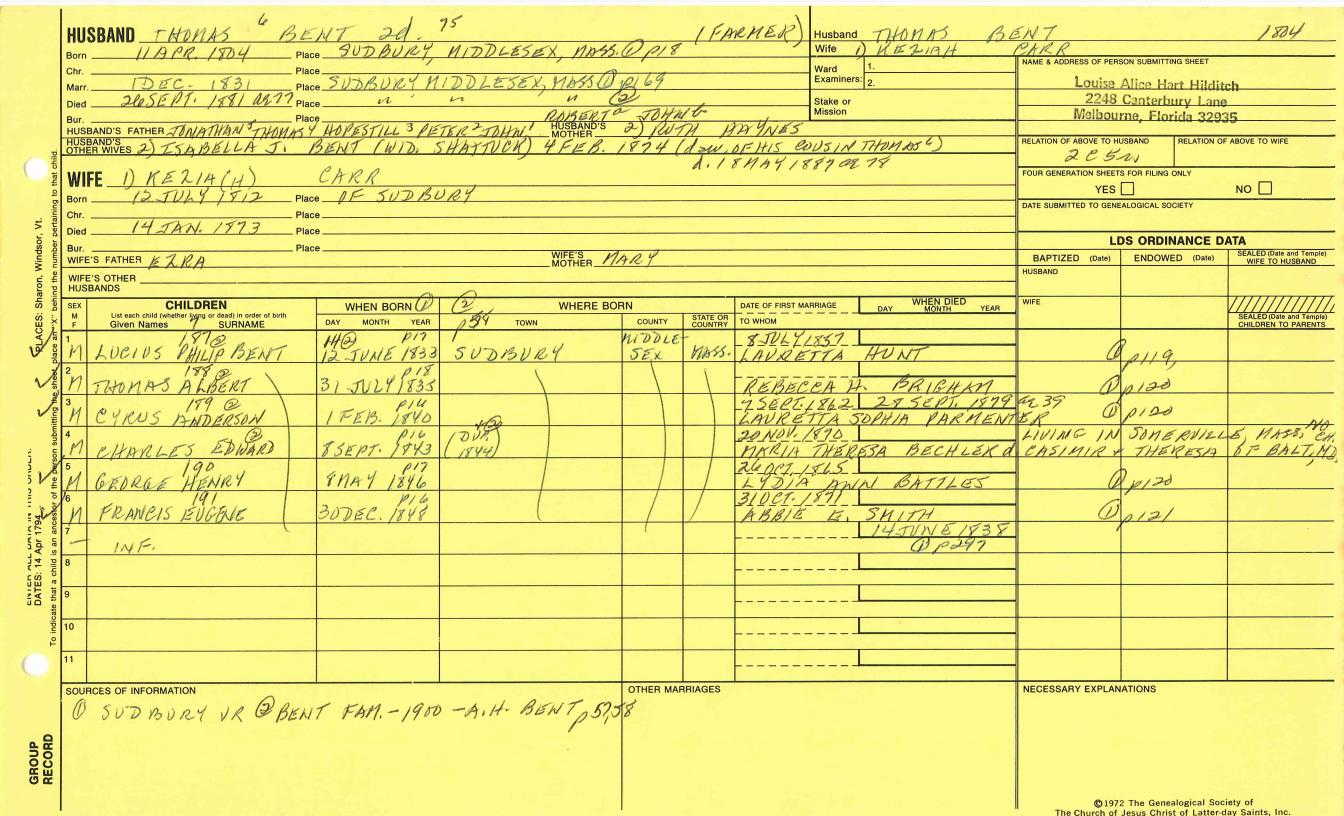 HUSBAND THOMAS 6 BENT 2d. 75 (FARMER)
Born 11 APR. 1804 Place SUDBURY, MIDDLESEX, MASS. ① p18
Chr. Place
Marr. 1 DEC. 1831 Place SUDBURY, MIDDLESEX, MASS ① p169
Died 26 SEPT. 1881 ae 77 Place " " " ②
Bur. Place ROBERT a JOHN b
HUSBAND'S FATHER JONATHAN 5 THOMAS 4 HOPESTILL 3 PETER 2 JOHN 1 HUSBAND'S MOTHER 2) RUTH HAYNES
HUSBAND'S OTHER WIVES 2) ISABELLA J. BENT (WID. SHATTUCK) 4 FEB. 1874 (dau. OF HIS COUSIN THOMAS 6)
d. 18 MAY 1887 ae 78
WIFE 1) KEZIA(H) CARR
Born 12 JULY 1812 Place OF SUDBURY
Chr. Place
Died 14 JAN. 1873 Place
Bur. Place
WIFE'S FATHER EZRA WIFE'S MOTHER MARY
WIFE'S OTHER HUSBANDS
Husband THOMAS BENT 1804
Wife 1) KEZIAH CARR
Ward Examiners: 1.
2.
Stake or Mission
NAME & ADDRESS OF PERSON SUBMITTING SHEET
Louise Alice Hart Hilditch
2248 Canterbury Lane
Melbourne, Florida 32935
RELATION OF ABOVE TO HUSBAND RELATION OF ABOVE TO WIFE
2 C 5
FOUR GENERATION SHEETS FOR FILING ONLY
YES NO
DATE SUBMITTED TO GENEALOGICAL SOCIETY
LDS ORDINANCE DATA
BAPTIZED (Date) ENDOWED (Date) SEALED (Date and Temple) WIFE TO HUSBAND
HUSBAND
WIFE
SEALED (Date and Temple) CHILDREN TO PARENTS
SEX M F CHILDREN WHEN BORN ① ② p59 WHERE BORN DATE OF FIRST MARRIAGE WHEN DIED
List each child (whether living or dead) in order of birth DAY MONTH YEAR TOWN COUNTY STATE OR COUNTRY TO WHOM DAY MONTH YEAR
Given Names 7 SURNAME
1 187 ② 14 ② p17 MIDDLE- 8 JULY 1857
M LUCIUS PHILIP BENT 12 JUNE 1833 SUDBURY SEX MASS. LAURETTA HUNT ① p119,
2 188 ② p18
M THOMAS ALBERT 31 JULY 1835 REBECCA H. BRIGHAM ① p120
3 189 ② p16 7 SEPT. 1862 28 SEPT. 1879 ae 39
M CYRUS ANDERSON 1 FEB. 1840 LAURETTA SOPHIA PARMENTER ① p120
4 ② p16 (DUP. 4 ② 1844) 20 NOV. 1870 LIVING IN SOMERVILLE, MASS, NO CH.
M CHARLES EDWARD 8 SEPT. 1843 MARIA THERESA BECHLER d CASIMIR & THERESA OF BALT, MD,
5 190 p17 26 OCT. 1865
M GEORGE HENRY 8 MAY 1846 LYDIA ANN BATTLES ① p120
6 191 p16 31 OCT. 1871
M FRANCIS EUGENE 30 DEC. 1848 ABBIE E. SMITH ① p121
7 — INF. 14 JUNE 1838
① p297
8
9
10
11
SOURCES OF INFORMATION
① SUDBURY VR ② BENT FAM. - 1900 - A.H. BENT p57,58
OTHER MARRIAGES
NECESSARY EXPLANATIONS
PLACES: Sharon, Windsor, Vt.
DATES: 14 Apr 1794
GROUP RECORD
©1972 The Genealogical Society of
The Church of Jesus Christ of Latter-day Saints, Inc.